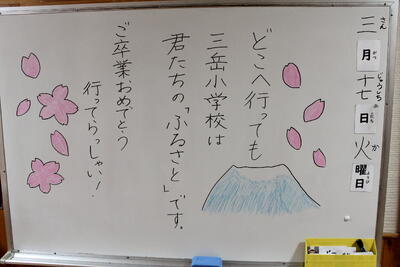 三月十七日火曜日
どこへ行っても
三岳小学校は
君たちの「ふるさと」です。
ご卒業おめでとう
行ってらっしゃい!